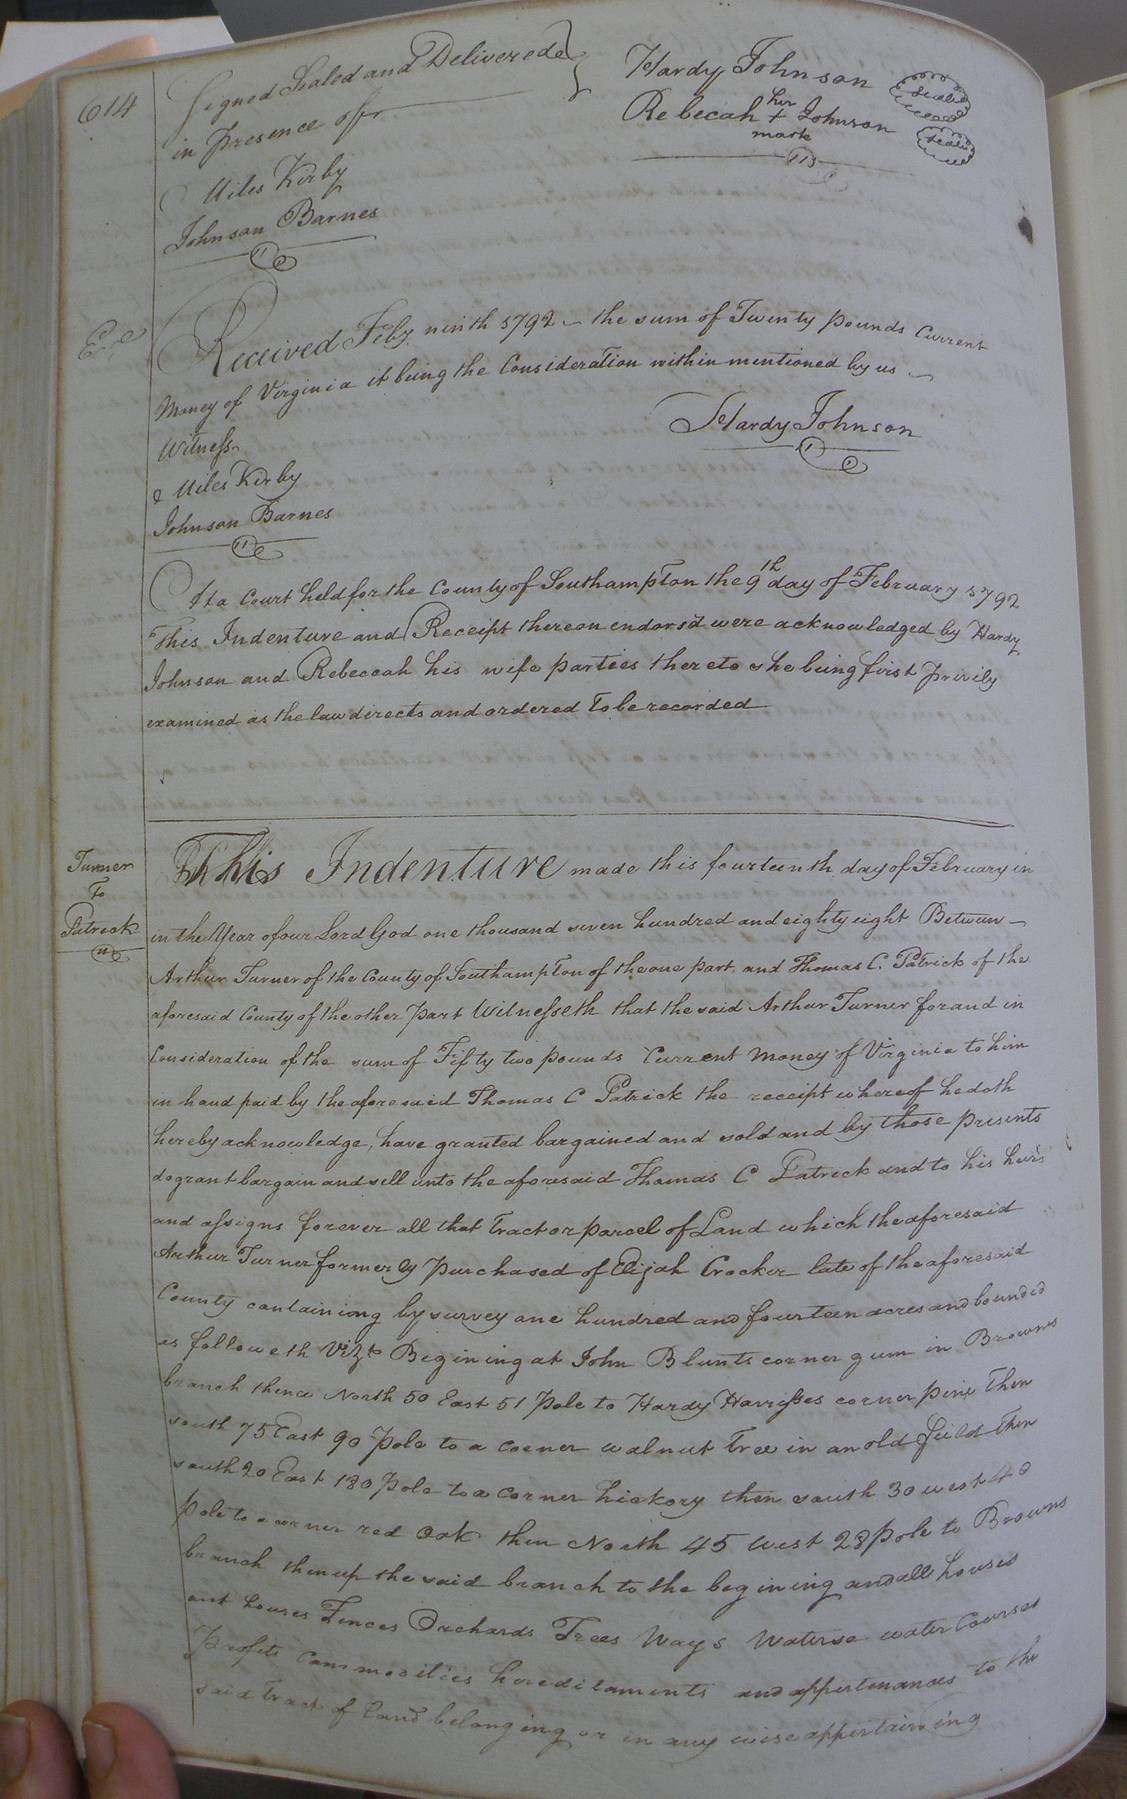 614
Signed Sealed and Delivered
in presence off
Miles Kirby
Johnson Barnes
Hardy Johnson Seal
Rebecah her + mark Johnson Seal
Received Feby ninth 1792 – the sum of Twenty pounds Current
Money of Virginia it being the Consideration within mentioned by us –
Witness
Hardy Johnson
Miles Kirby
Johnson Barnes
At a Court held for the County of Southampton the 9th day of February 1792
This Indenture and Receipt thereon endorsd were acknowledged by Hardy
Johnson and Rebeccah his wife parties thereto she being first privily
examined as the law directs and ordered to be recorded
Turner
To
Patrick
This Indenture made this fourteenth day of February in
in the Year of our Lord God one thousand seven hundred and eighty eight Between –
Arthur Turner of the County of Southampton of the one part and Thomas C. Patrick of the
aforesaid County of the other part Witnesseth that the said Arthur Turner for and in
Consideration of the sum of Fifty two pounds Current Money of Virginia to him
in hand paid by the aforesaid Thomas C Patrick the receipt whereof he doth
hereby acknowledge, have granted bargained and sold and by those presents
do grant bargain and sell unto the aforesaid Thomas C Patrick and to his heirs
and assigns forever all that Tract or parcel of Land which the aforesaid
Arthur Turner formerly purchased of Elijah Crocker late of the aforesaid
County containing by survey one hundred and fourteen acres and bounded
as followeth Vizt Begining at John Blunts corner gum in Browns
branch thence North 50 East 51 pole to Hardy Harrisses corner pine Then
south 75 East 90 pole to a corner walnut Tree in an old field Then
south 20 East 180 pole to a corner hickory then south 30 west 40
pole to a corner red Oak then North 45 West 28 pole to Browns
branch then up the said branch to the begining and all houses
out houses Fences Orchards Trees Ways Waterse water Courses
profits Commodities hereditaments and appertenances to the
said Tract of Land belonging or in any wise appertaining